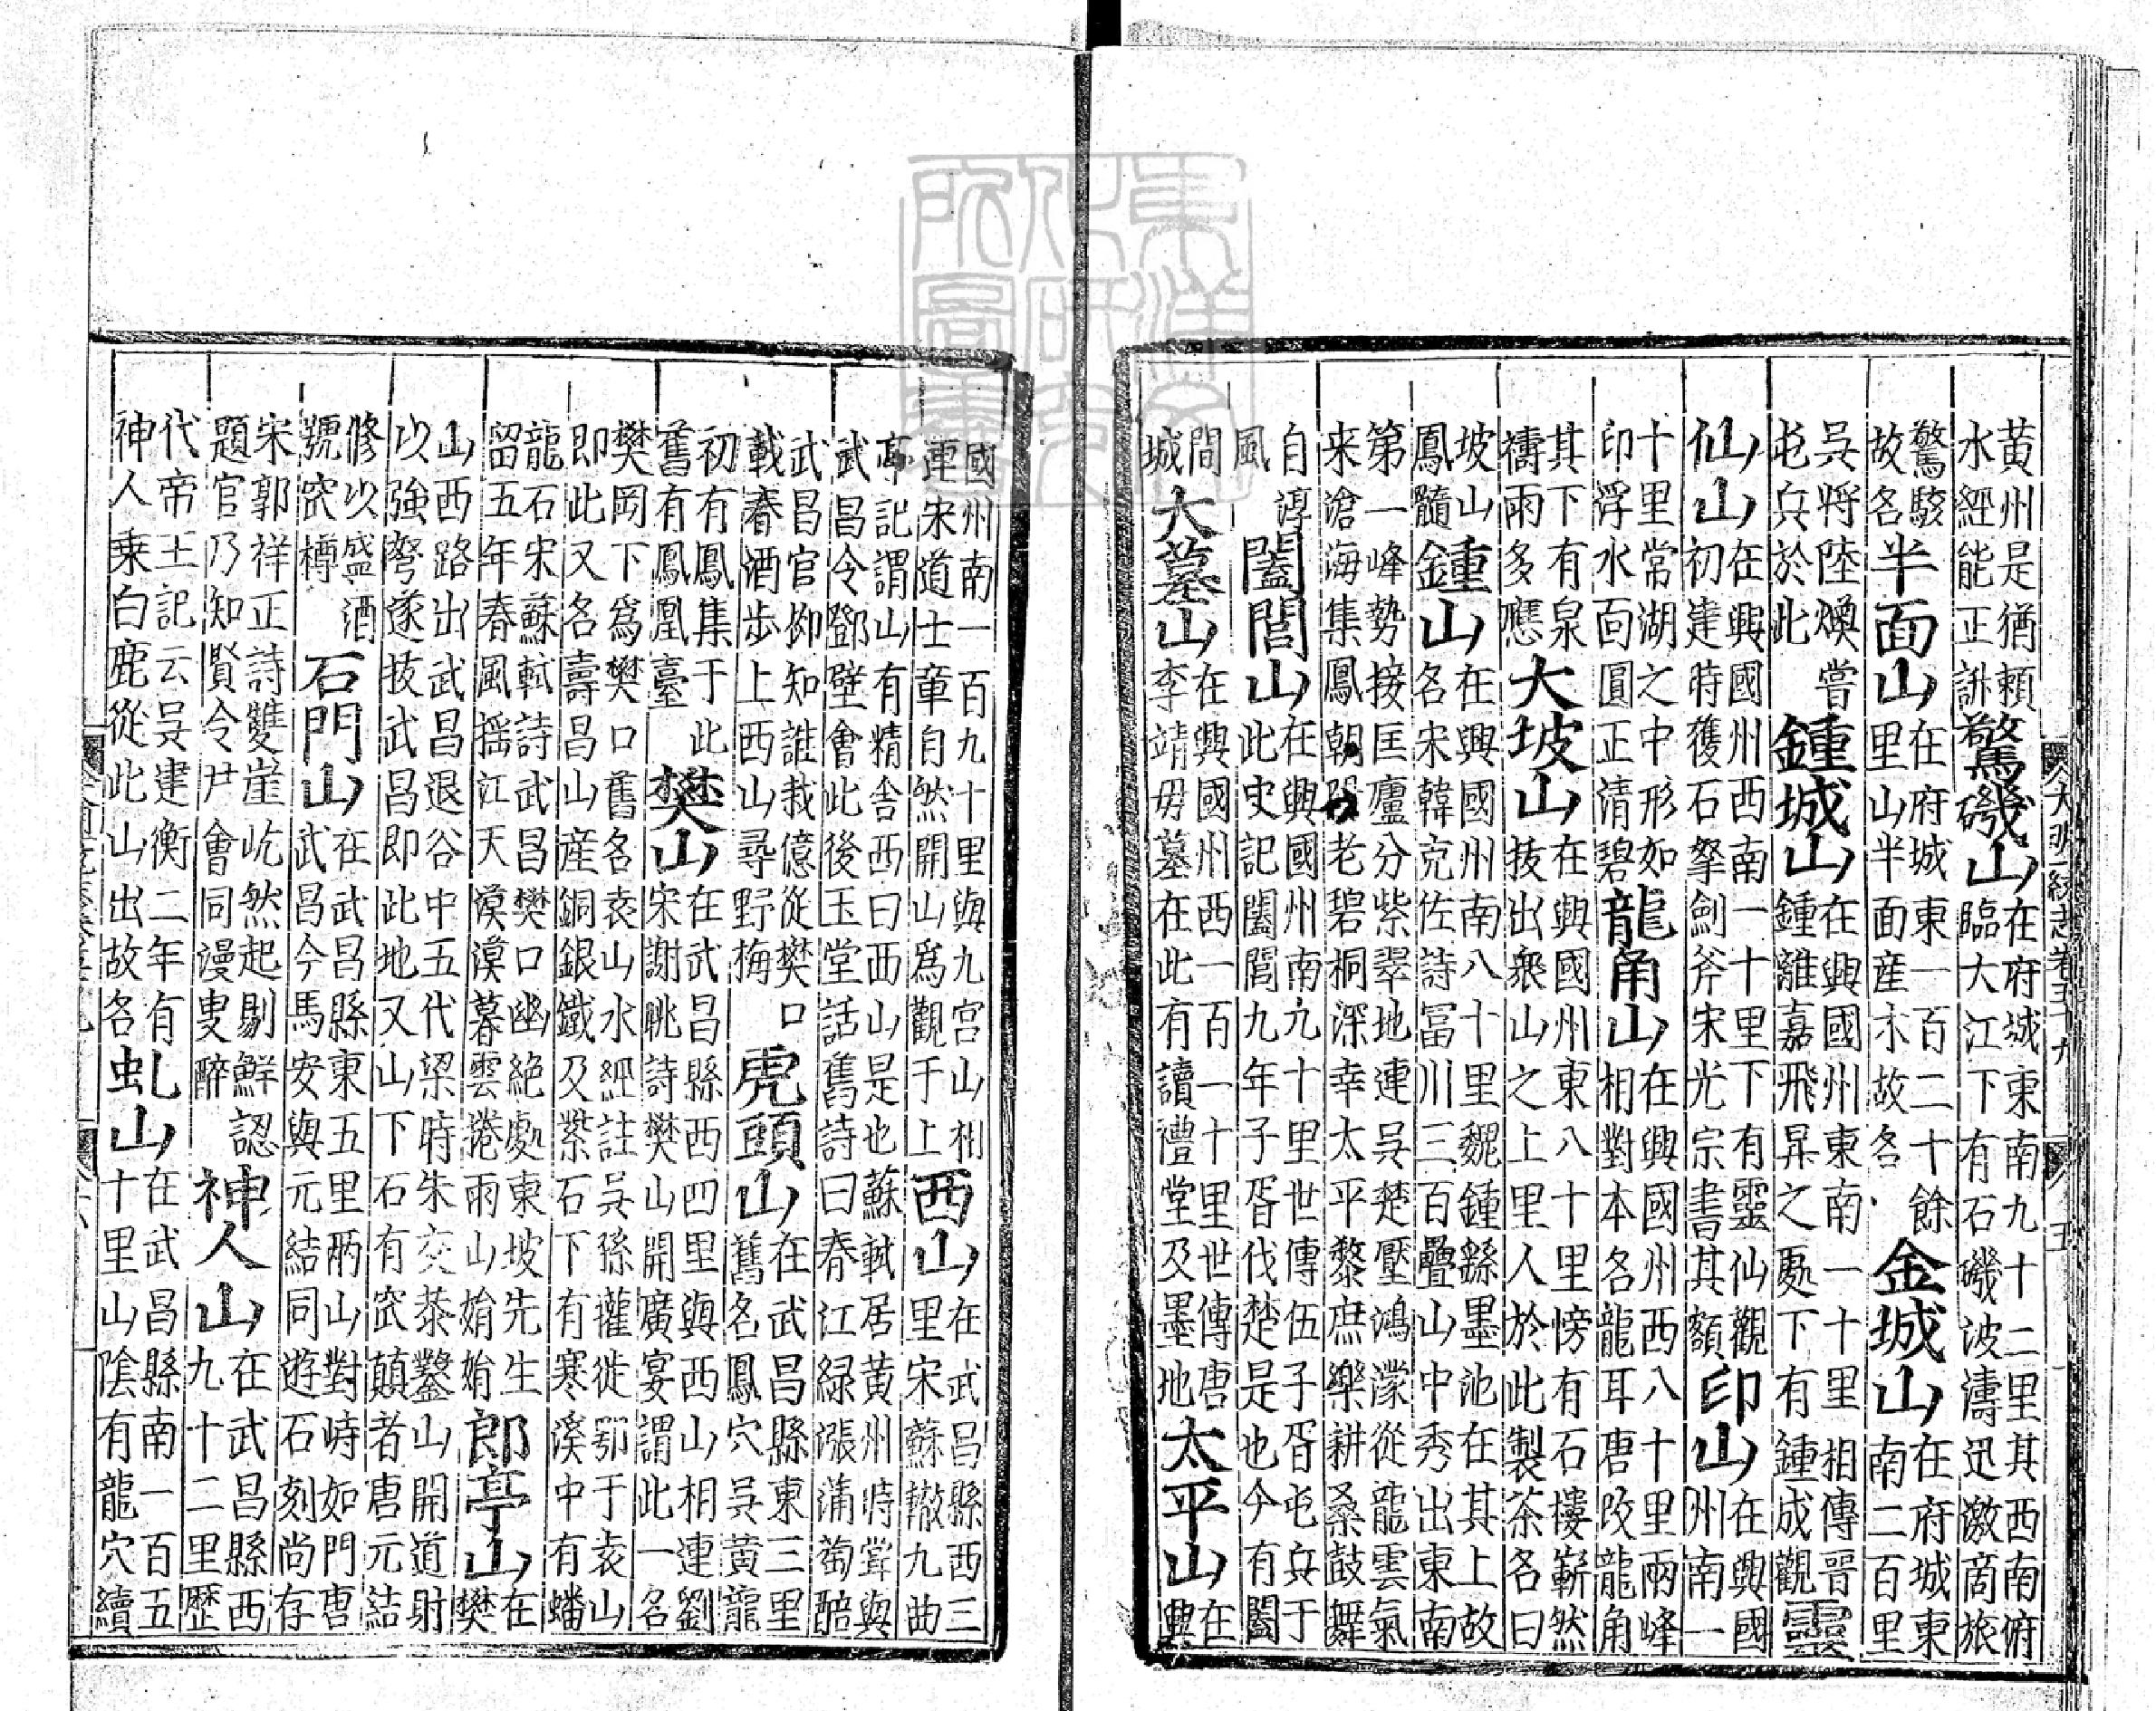 黄州是猶頼水經能正訛驚磯山在府城東南九十二里其西南俯臨大江下有石磯波濤迅激商旅
驚駭故名半面山在府城東一百二十餘里山半面産木故名金城山在府城東南二百里
吳將陸煥嘗屯兵於此鍾城山在興國州東南一十里相傳晉鍾離嘉飛昇之處下有鍾成觀靈
仙山在興國州西南一十里下有靈仙觀初建時獲石拏劍斧宋光宗書其額印山在興國州南一
十里常湖之中形如印浮水面圓正清碧龍角山在興國州西八十里兩峰相對本名龍耳唐改龍角
其下有泉禱雨多應大坡山在興國州東八十里傍有石樓嶄然拔出衆山之上里人於此製茶名曰
坡山鳳髓鍾山在興國州南八十里魏鍾繇墨池在其上故名宋韓克佐詩冨川三百疊山中秀出東南
第一峰勢接匡廬分紫翠地連吳楚壓鴻濛從龍雲氣来滄海集鳳朝老碧桐深幸太平黎庶樂耕桑鼓舞
自淳風闔閭山在興國州南九十里世傳伍子胥屯兵于此史記闔閭九年子胥伐楚是也今有闔
閭城大墓山在興國州西一百一十里世傳唐李靖毋墓在此有讀禮堂及墨地太平山在興
大明一統志卷五十九 五
國州南一百九十里與九宫山相連宋道士章自然開山爲觀于上西山在武昌縣西三里宋蘇轍九曲
亭記謂山有精舎西曰西山是也蘇軾居黄州時嘗與武昌令鄧聖會此後玉堂話舊詩曰春江緑漲蒲萄醅
武昌官栁知誰栽憶從樊口載春酒步上西山尋野梅虎頭山在武昌縣東三里舊名鳳穴吳黄龍
初有鳳集于此舊有鳳凰臺樊山在武昌縣西四里與西山相連劉宋謝眺詩樊山開廣宴謂此一名
樊岡下爲樊口舊名袁山水經註吳孫權徙鄂于袁山即此又名壽昌山産銅銀鐵及紫石下有寒溪中有蟠
龍石宋蘇軾詩武昌樊口幽絶處東坡先生留五年春風揺江天漠漠暮雲捲雨山娟娟郎亭山在樊
山西路出武昌退谷中五代梁時朱友恭鑿山開道射以強弩遂拔武昌即此地又山下石有窊顛者唐元結
修以盛酒號窊樽石門山在武昌縣東五里兩山對峙如門唐武昌今馬安與元結同遊石刻尚存
宋郭祥正詩雙崖屹然起剔鮮認題官乃知賢令尹會同漫叟醉神人山在武昌縣西九十二里歷
代帝王記云吳建衡二年有神人乗白鹿從此山出故名虬山在武昌縣南一百五十里山陰有龍穴續